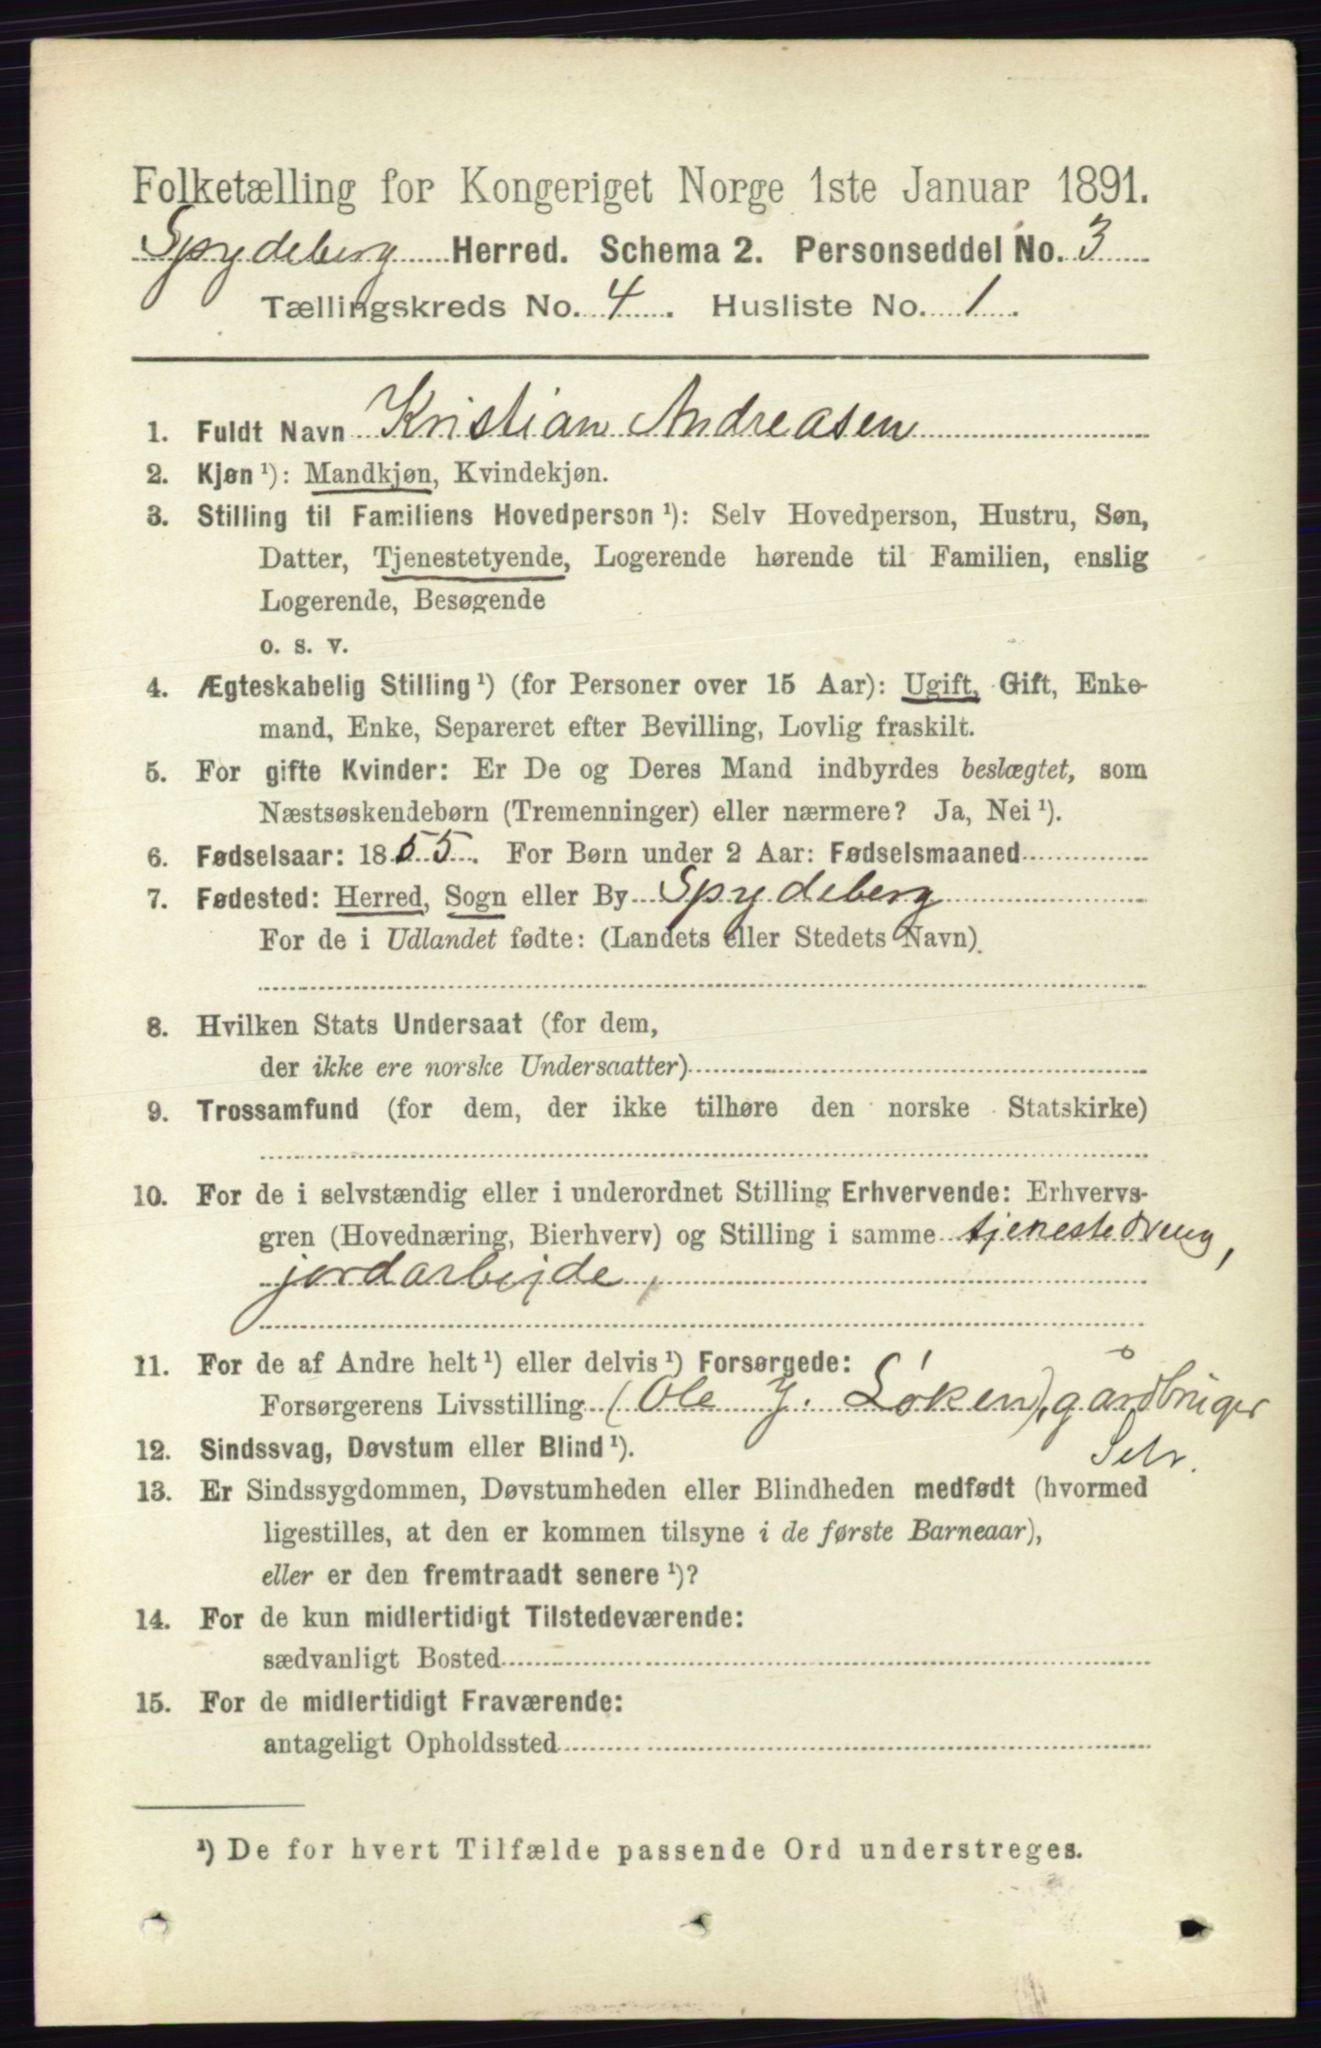 Folketælling for Kongeriget Norge 1ste Januar 1891.
Spydeberg Herred. Schema 2. Personseddel No. 3
Tællingskreds No. 4. Husliste No. 1.
1. Fuldt Navn Kristian Andreasen
2. Kjøn ¹): Mandkjøn, Kvindekjøn.
3. Stilling til Familiens Hovedperson ¹): Selv Hovedperson, Hustru, Søn,
Datter, Tjenestetyende, Logerende hørende til Familien, enslig
Logerende, Besøgende
o. s. v.
4. Ægteskabelig Stilling ¹) (for Personer over 15 Aar): Ugift, Gift, Enke-
mand, Enke, Separeret efter Bevilling, Lovlig fraskilt.
5. For gifte Kvinder: Er De og Deres Mand indbyrdes beslægtet, som
Næstsøskendebørn (Tremenninger) eller nærmere? Ja, Nei ¹).
6. Fødselsaar: 1855. For Børn under 2 Aar: Fødselsmaaned
7. Fødested: Herred, Sogn eller By Spydeberg
For de i Udlandet fødte: (Landets eller Stedets Navn)
8. Hvilken Stats Undersaat (for dem,
der ikke ere norske Undersaatter)
9. Trossamfund (for dem, der ikke tilhøre den norske Statskirke)
10. For de i selvstændig eller i underordnet Stilling Erhvervende: Erhvervs-
gren (Hovednæring, Bierhverv) og Stilling i samme tjenestedreng,
jordarbejde,
11. For de af Andre helt ¹) eller delvis ¹) Forsørgede:
Forsørgerens Livsstilling (Ole J. Løken), gårdbruger
Selv.
12. Sindssvag, Døvstum eller Blind ¹).
13. Er Sindssygdommen, Døvstumheden eller Blindheden medfødt (hvormed
ligestilles, at den er kommen tilsyne i de første Barneaar),
eller er den fremtraadt senere ¹)?
14. For de kun midlertidigt Tilstedeværende:
sædvanligt Bosted
15. For de midlertidigt Fraværende:
antageligt Opholdssted
¹) De for hvert Tilfælde passende Ord understreges.